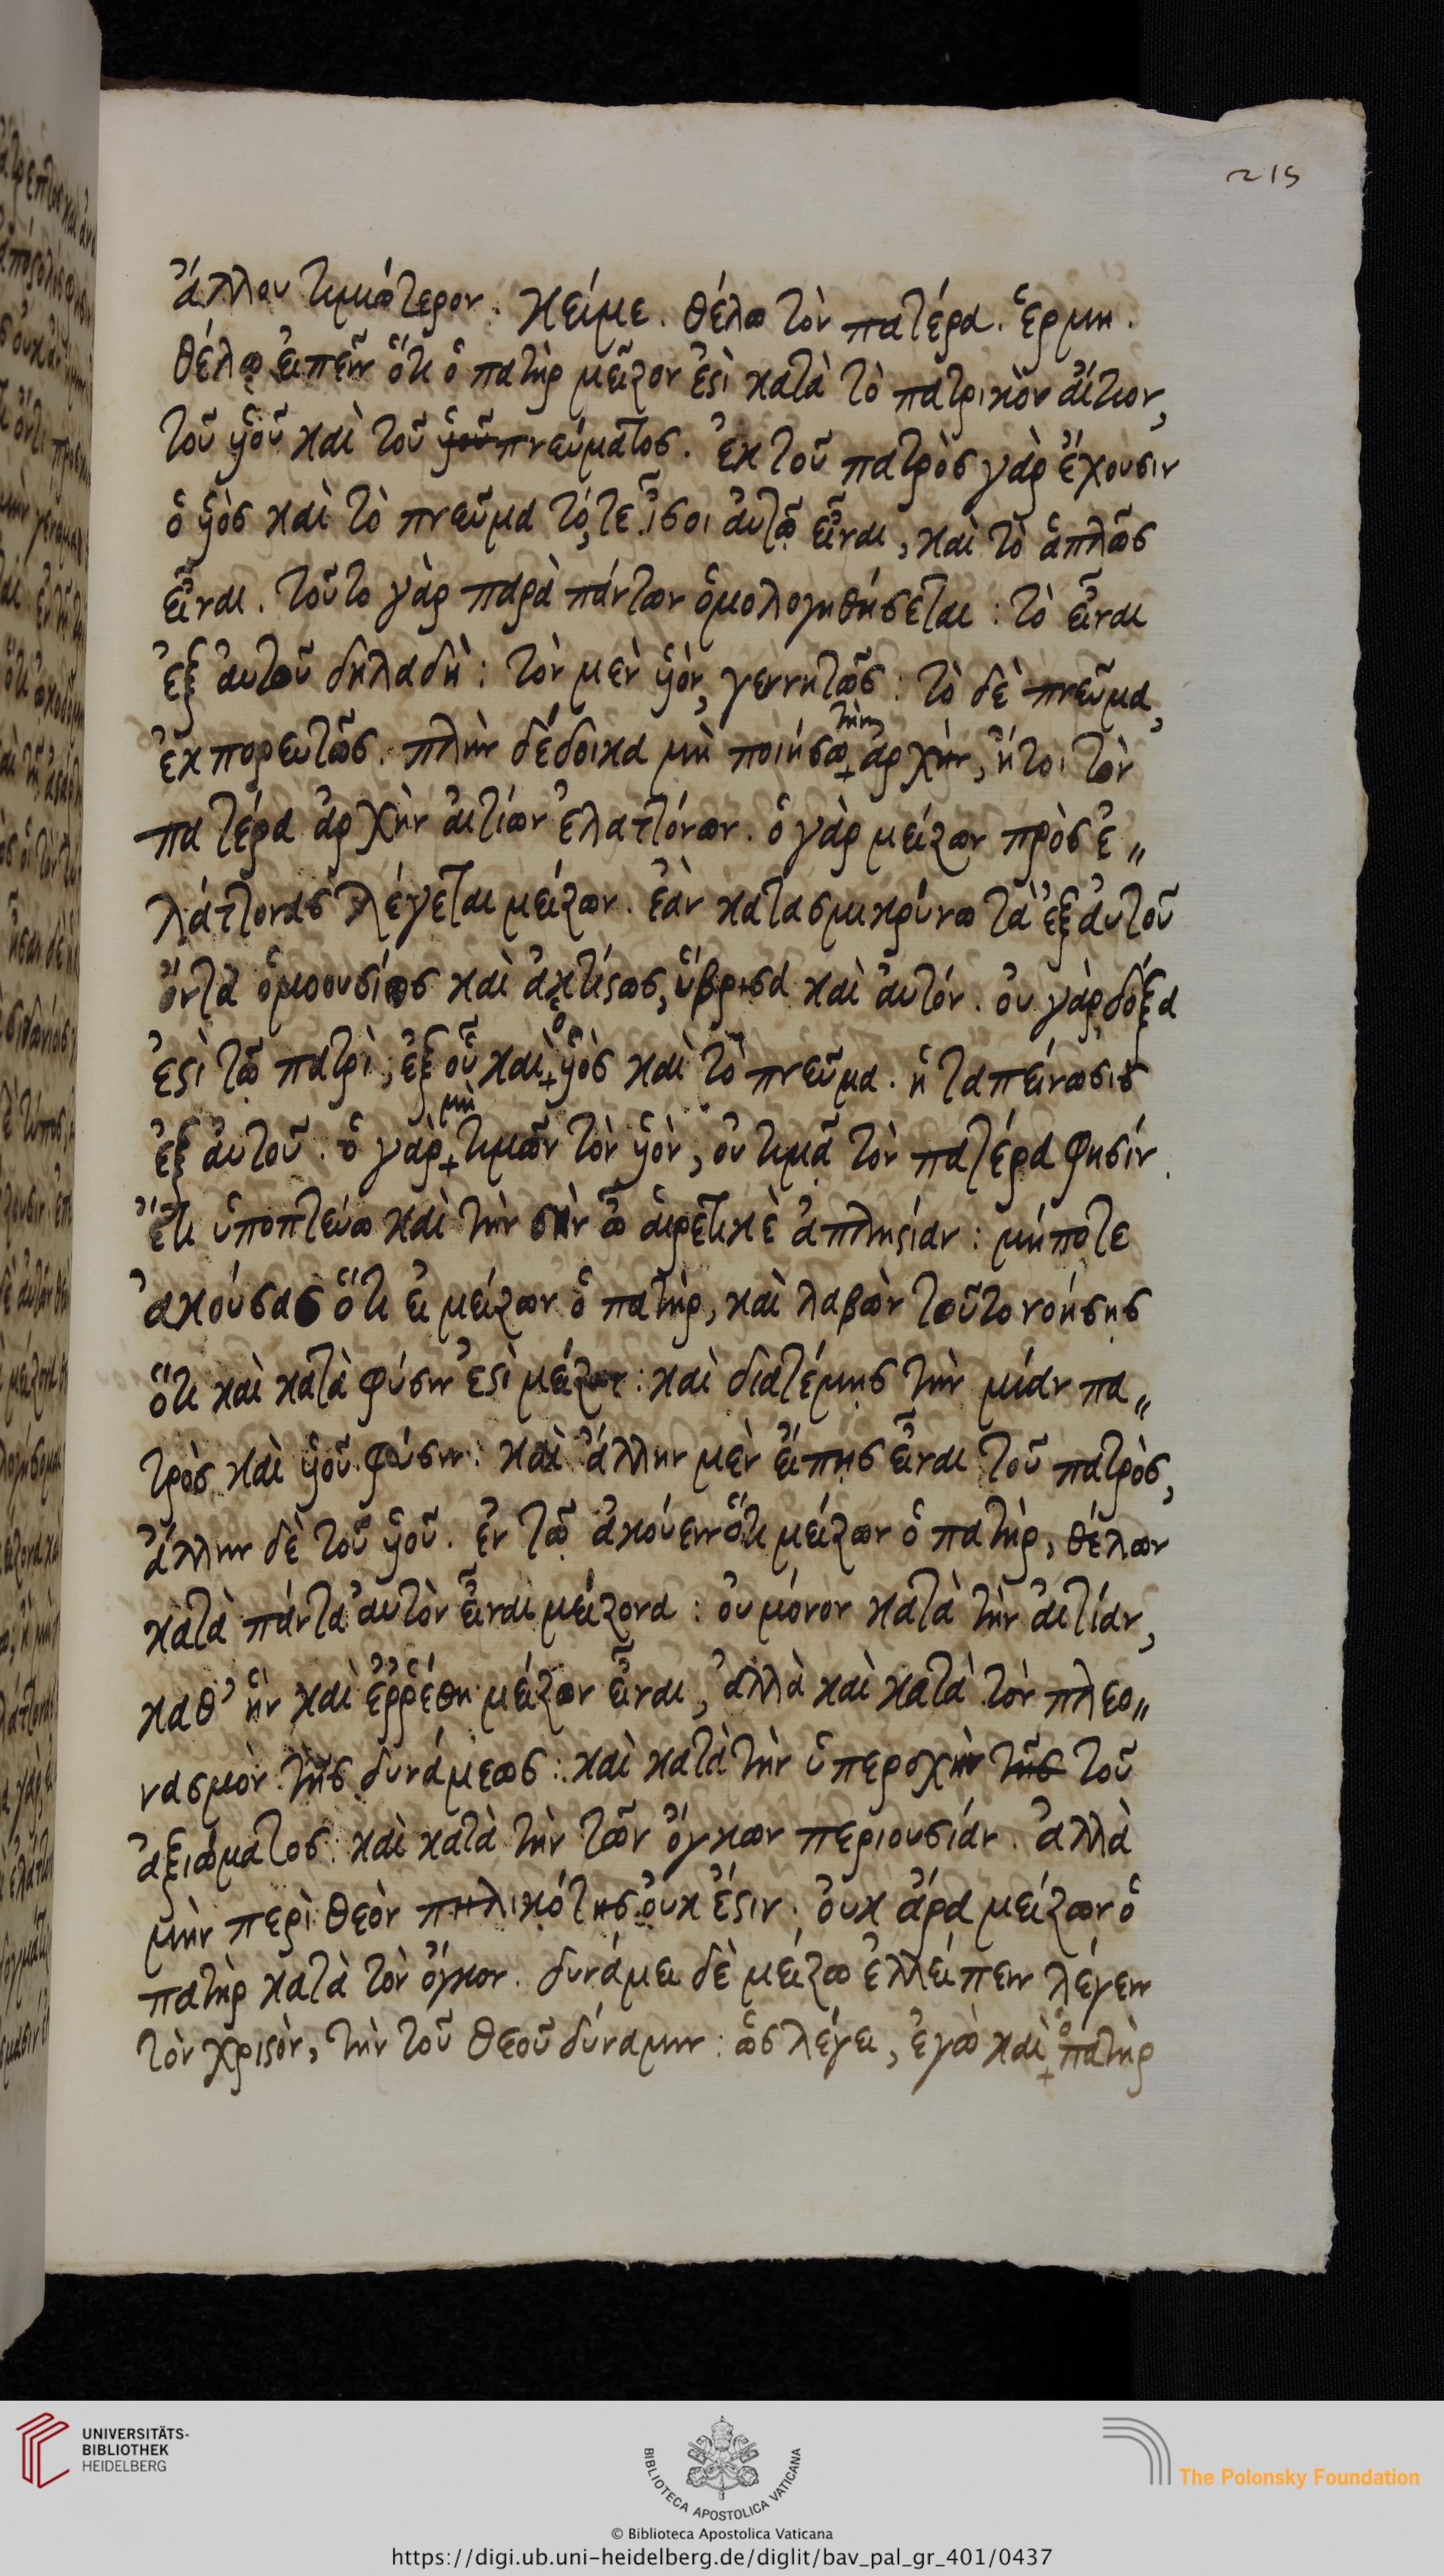 215
ἄλλου τιμιώτερον. Κείμε. θέλω τὸν πατέρα. Ἑρμη.
θέλω εἰπεῖν ὅτι ὁ πατὴρ μεῖζον ἐστὶ κατὰ τὸ πατρικὸν αἴτιον,
τοῦ υἱοῦ καὶ τοῦ υἱοῦ πνεύματος. ἐκ τοῦ πατρὸς γὰρ ἔχουσιν
ὁ υἱὸς καὶ τὸ πνεῦμα τό, τε ἶσοι αὐτῷ εἶναι, καὶ τὸ ἁπλῶς
εἶναι. τοῦτο γὰρ παρὰ πάντων ὁμολογηθήσεται : τὸ εἶναι
ἐξ αὐτοῦ δηλαδή : τὸν μὲν υἱὸν, γεννητῶς : τὸ δὲ πνεῦμα,
ἐκπορευτῶς. πλὴν δέδοικα μὴ ποιήσω τὴν ἀρχὴν, ἤτοι τὸν
πατέρα ἀρχὴν αἰτίων ἐλαττόνων. ὁ γὰρ μείζων πρὸς ἐ〃
λάττονας λέγεται μείζων. ἐὰν κατασμικρύνω τὰ ἐξ αὐτοῦ
ὄντα ὁμοουσίως καὶ ἀκτίστως, ὕβρισα καὶ αὐτόν. οὐ γὰρ δόξα
ἐστὶ τῷ πατρὶ, ἐξ οὗ καὶ ὁ υἱὸς καὶ τὸ πνεῦμα. ἡ ταπείνωσις
ἐξ αὐτοῦ. ὁ γὰρ μὴ τιμῶν τὸν υἱὸν, οὐ τιμᾷ τὸν πατέρα φησίν.
ἔτι ὑποπτεύω καὶ τὴν σὴν ὦ αἱρετικὲ ἀπληστίαν : μήποτε
ἀκούσας ὅτι εἰ μείζων ὁ πατὴρ, καὶ λαβὼν τοῦτο νοήσῃς
ὅτι καὶ κατὰ φύσιν ἐστὶ μείζων : καὶ διατέμῃς τὴν μίαν πα〃
τρὸς καὶ υἱοῦ φύσιν : καὶ ἄλλην μὲν εἴπῃς εἶναι τοῦ πατρὸς,
ἄλλην δὲ τοῦ υἱοῦ. ἐν τῷ ἀκούειν ὅτι μείζων ὁ πατὴρ, θέλων
κατὰ πάντα αὐτὸν εἶναι μείζονα : οὐ μόνον κατὰ τὴν αἰτίαν,
καθ' ἣν καὶ ἐῤῥέθη μείζων εἶναι, ἀλλὰ καὶ κατὰ τὸν πλεο〃
νασμὸν τῆς δυνάμεως : καὶ κατὰ τὴν ὑπεροχὴν τῆς τοῦ
ἀξιώματος : καὶ κατὰ τὴν τῶν ὄγκων περιουσίαν. ἀλλὰ
μὴν περὶ θεὸν πηλικότης οὐκ ἔστιν. οὐκ ἄρα μείζων ὁ
πατὴρ κατὰ τὸν ὄγκον. δυνάμει δὲ μείζω ἐλλείπειν λέγειν
τὸν χριστὸν, τὴν τοῦ θεοῦ δύναμιν : ὡς λέγει, ἐγὼ καὶ ὁ πατὴρ
UNIVERSITÄTS-
BIBLIOTHEK
HEIDELBERG
BIBLIOTECA APOSTOLICA VATICANA
The Polonsky Foundation
© Biblioteca Apostolica Vaticana
https://digi.ub.uni-heidelberg.de/diglit/bav_pal_gr_401/0437